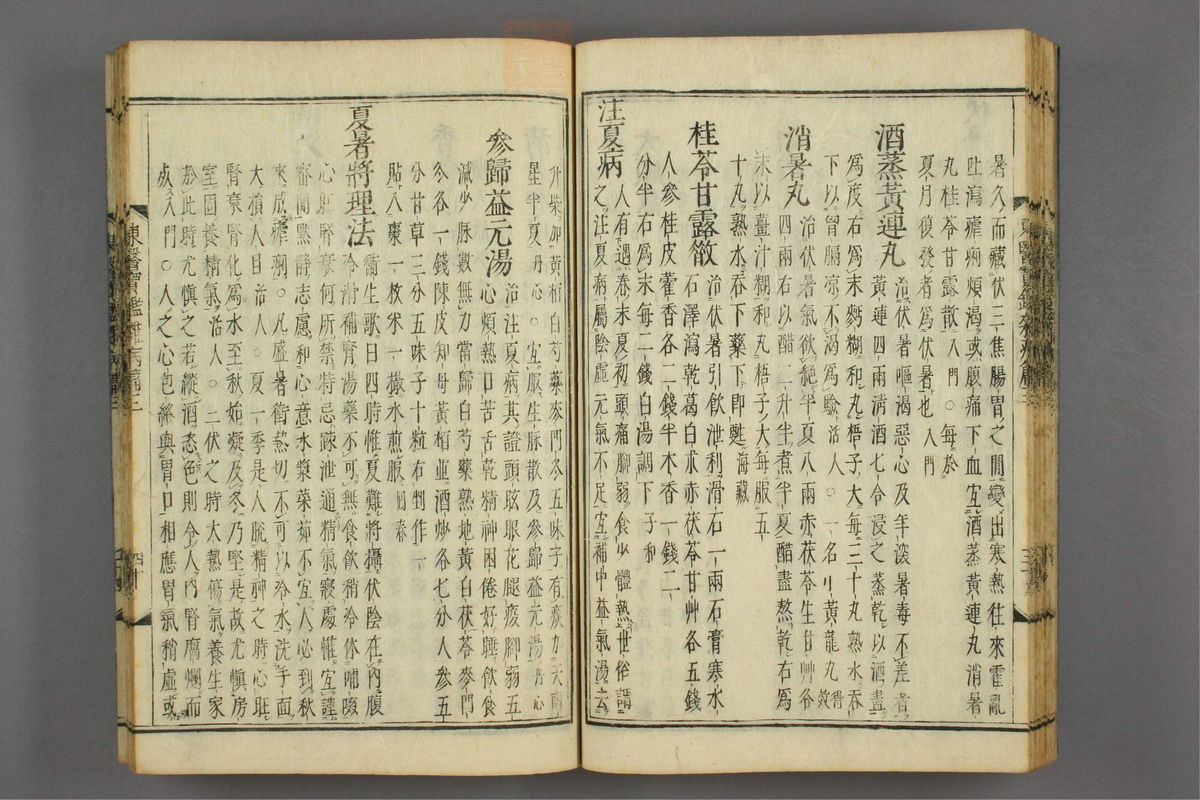 暑久而藏伏三焦腸胃之間變出寒熱往來霍亂
吐瀉瘧痢煩渴或腹痛下血宜酒蒸黃連丸消暑
丸桂苓甘露散入門○每於
夏月復發者爲伏暑也入門
酒蒸黃連丸治伏暑嘔渴惡心及年深暑毒不差者
黃連四兩淸酒七合浸之蒸乾以酒盡
爲度右爲末麪糊和丸梧子大每三十丸熟水呑
下以胃膈凉不渴爲驗活人○一名小黃龍丸得效
消暑丸治伏暑氣欲絶半夏八兩赤茯苓生甘艸各
四兩右以醋二升半煮半夏醋盡熬乾右爲
末以薑汁糊和丸梧子大每服五
十丸熟水呑下藥下卽甦海藏
桂苓甘露散治伏暑引飮泄利滑石一兩石膏寒水
石澤瀉乾葛白朮赤茯苓甘艸各五錢
人參桂皮藿香各二錢半木香一錢二
分半右爲末每二錢白湯調下子和
注夏病人有遇春末夏初頭痛脚弱食少體熱世俗謂
之注夏病屬陰虛元氣不足宜補中益氣湯去
升柴加黃栢白芍藥麥門冬五味子有痰加天南
星半夏丹心○宜服生脉散及參歸益元湯丹心
參歸益元湯治注夏病其證頭眩眼花腿痠脚弱五
心煩熱口苦舌乾精神困倦好睡飮食
減少脉數無力當歸白芍藥熟地黃白茯苓麥門
冬各一錢陳皮知母黃栢並酒炒各七分人參五
分甘草三分五味子十粒右剉作一
貼入棗一枚米一撮水煎服回春
夏暑將理法衛生歌曰四時惟夏難將攝伏陰在內腹
冷滑補腎湯藥不可無食飮稍冷休哺啜
心旺腎衰何所禁特忌踈泄通精氣寢處惟宜謹
密間默靜志慮和心意氷漿菜茹不宜人必到秋
來成瘧痢○凡盛暑衝熱切不可以冷水洗手面
大損人目活人○夏一季是人脫精神之時心旺
腎衰腎化爲水至秋始凝及冬乃堅是故尤愼房
室固養精氣活人○二伏之時大熱傷氣養生家
於此時尤愼之若縱酒恣色則令人內腎腐爛而
死入門○人之心包絡與胃口相應胃氣稍虛或
東醫寶鑑雜病篇三
四十